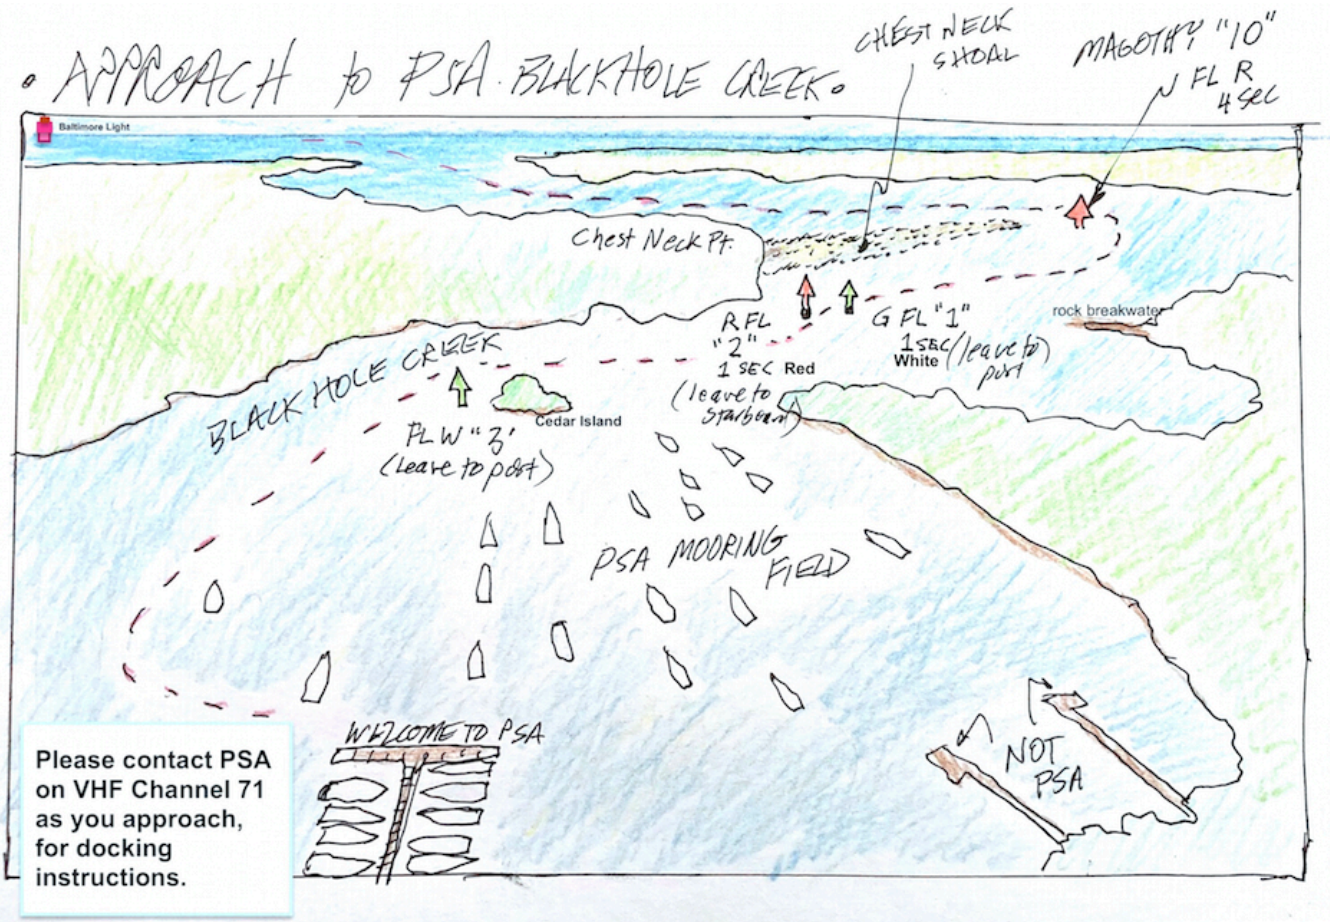 • APPROACH to PSA • BLACKHOLE CREEK •
CHEST NECK
SHOAL
MAGOTHY "10"
FL R
4 SEC
Baltimore Light
Chest Neck Pt.
rock breakwater
R FL
"2"
1 SEC Red
(leave to
starboard)
G FL "1"
1 SEC (leave to)
White port
BLACKHOLE CREEK
Cedar Island
FL W "3"
(Leave to port)
PSA MOORING
FIELD
WELCOME TO PSA
NOT
PSA
Please contact PSA
on VHF Channel 71
as you approach,
for docking
instructions.